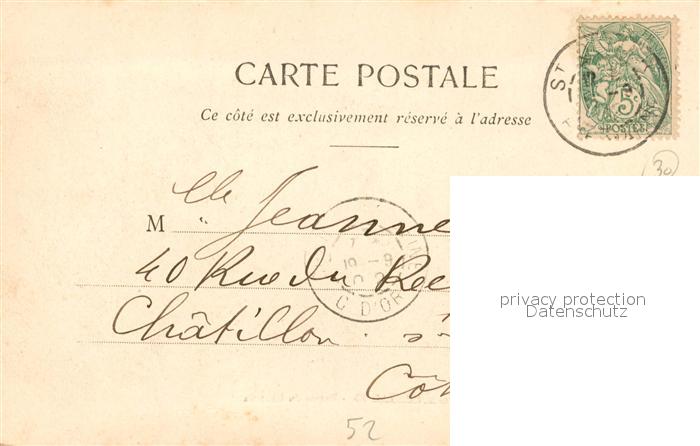 CARTE POSTALE
Ce côté est exclusivement réservé à l'adresse
ST
5c
POSTES
30
Mlle Jeanne
40 Rue du Rec
Châtillon s/
Côt
C. D'OR
privacy protection
Datenschutz
52